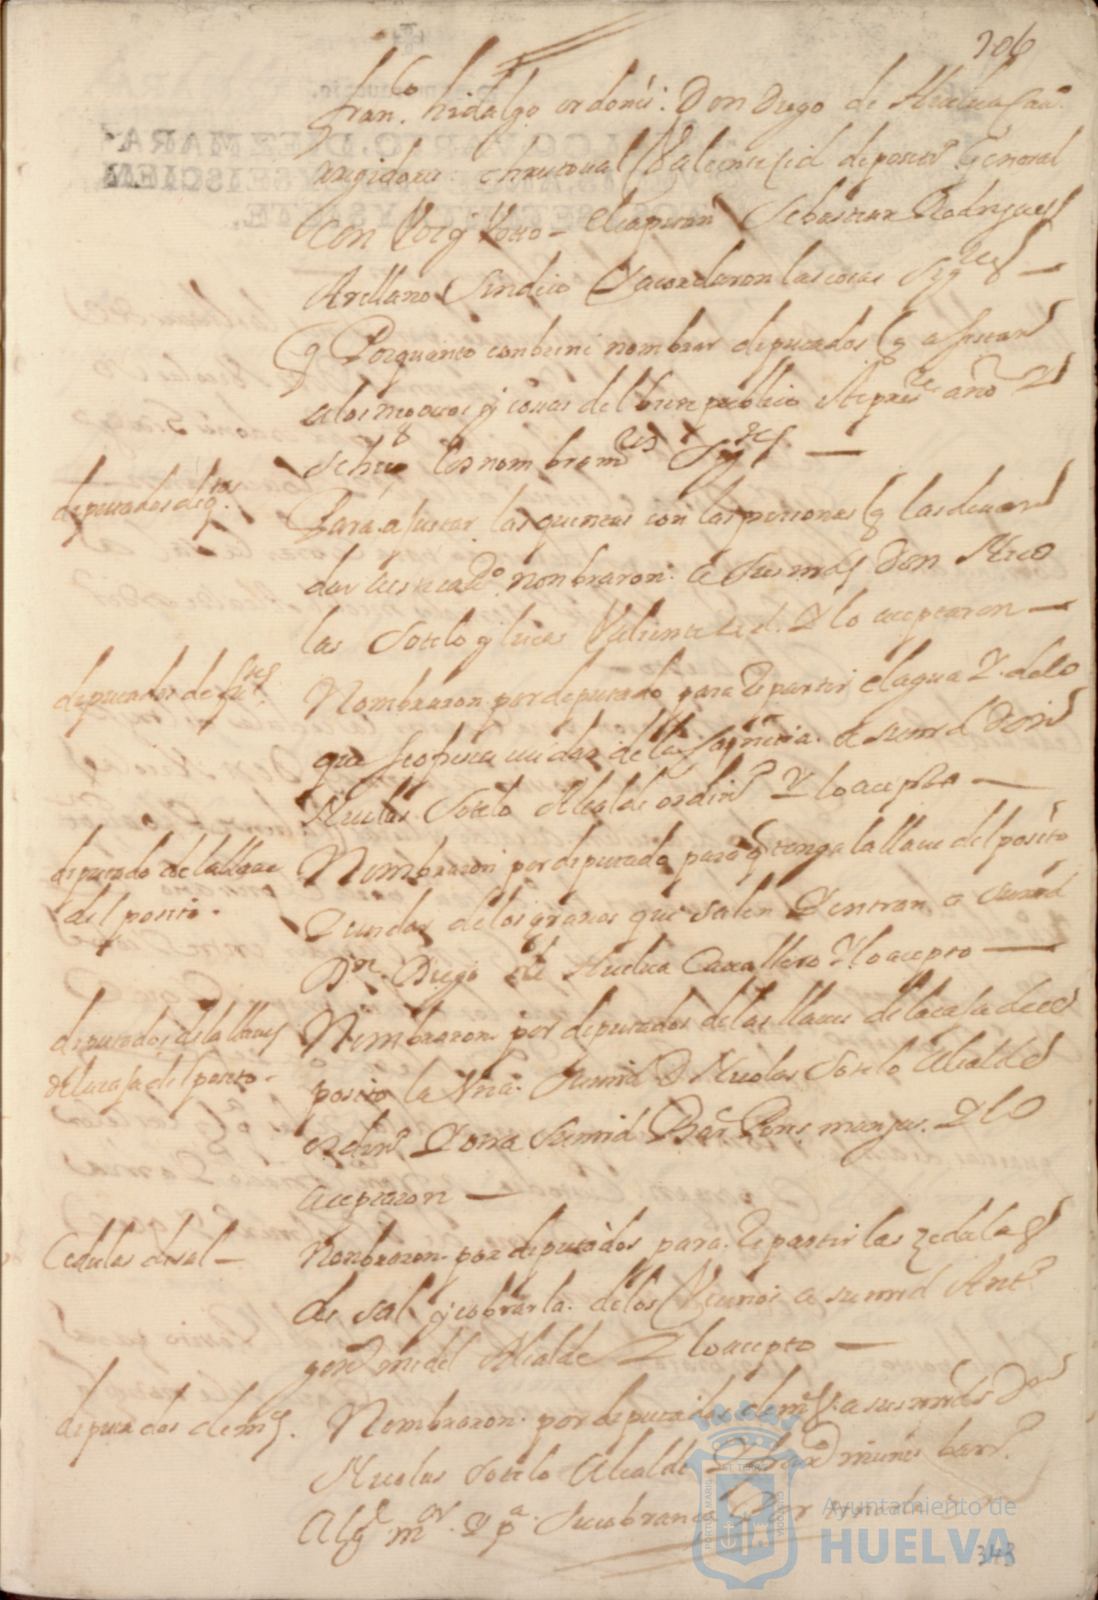 206
fran.co hidalgo ordoñes: Don Diego de Huelua Cau.o
regidores. christoual Valiente Cid deposit.o General
con Voz y Voto - el capitan Sebastian Rodrigues
Arellano Sindico Y acordaron las cosas sig.tes —
Y Por quanto conbiene nombrar deputados q asistan
a los negocios y cosas del bien publico de este pres.te año Y
se hiço los nombram.tos sig.tes —
deputados de q.tas
Para ajustar las quentas con las personas q las deuan
dar nonbraron. a sus mds Don Nico
las Sotelo y lucas Valiente Cid. Y lo aceptaron —
deputados de fu.tes
Nombraron por deputado para Repartir el agua Y de lo
que se ofresca cuidar de la a su md Don
Nicolas Sotelo Alcalde ordin.o Y lo acepto —
deputado de la llaue
del posito.
Nombraron por deputado para q tenga la llaue del posito
Y cuidar de los granos que salen Y entran a su md
D.n Diego de Huelua Cauallero Y lo acepto —
deputados de la llaues
de la casa del posito.
Nombraron por deputados de las llaues de la casa de el
posito la Vna. su md D Nicolas Sotelo Alcalde
ordin.o Y otra su md Y lo
aceptaron —
Cedulas de sal —
Nonbraron por deputados para Repartir las zedulas
de sal y cobrarla de los Vecinos a su md Ant.o
gon.s midel Alcalde Y lo acepto —
deputados de
Nombraron por deputados de a sus mrds Don
Nicolas Sotelo Alcalde Y muñis barr.o
Alg.l m.or Y p.a su cobrança
Ayuntamiento de
HUELVA
343